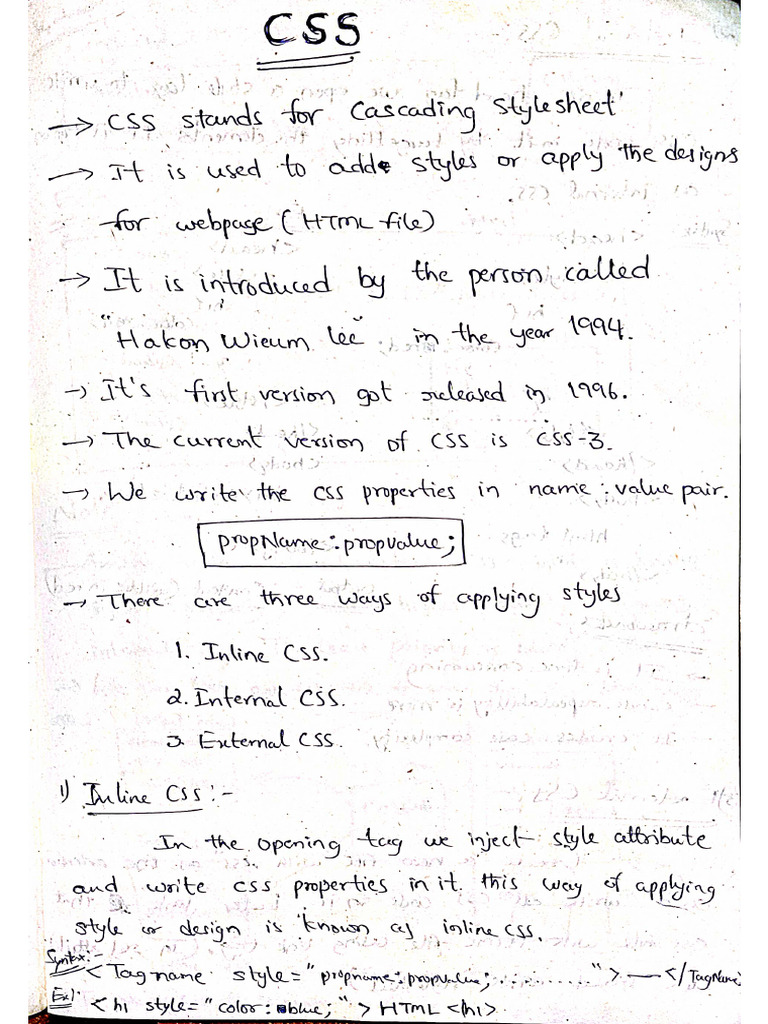 CSS
→ CSS stands for Cascading Stylesheet'
→ It is used to add styles or apply the designs
for webpage (HTML file)
→ It is introduced by the person called
"Hakon Wieum lee" in the year 1994.
→ It's first version got released in 1996.
→ The current version of CSS is CSS-3.
→ We write the css properties in name:value pair.
propName:propvalue;
→ There are three ways of applying styles
1. Inline CSS.
2. Internal CSS.
3. External CSS.
1) Inline CSS:-
In the opening tag we inject style attribute
and write css properties in it. this way of applying
style or design is known as inline css.
Syntax:-
<Tagname style="propname:propvalue;.........."> — </TagName
Ex):
<h1 style="color:blue;"> HTML <h1>